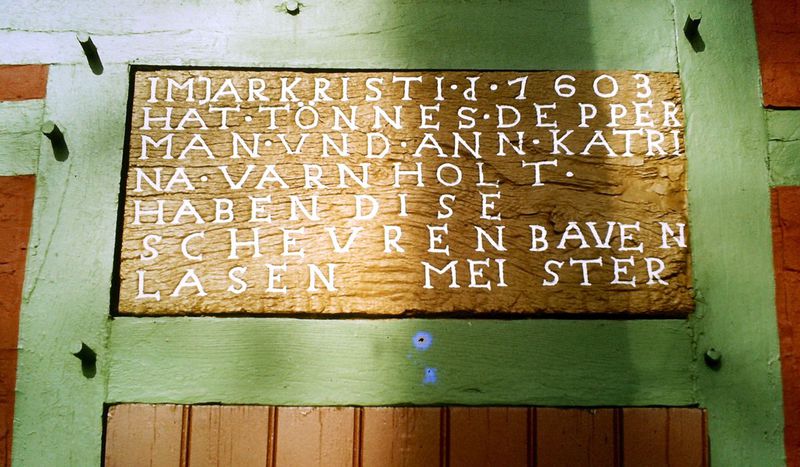 IM JAR KRISTI · d · 1603
HAT · TÖNNES · DEPPER
MAN · VND · ANN · KATRI
NA · VARNHOLT ·
HABEN DISE
SCHEVREN BAVEN
LASEN MEISTER